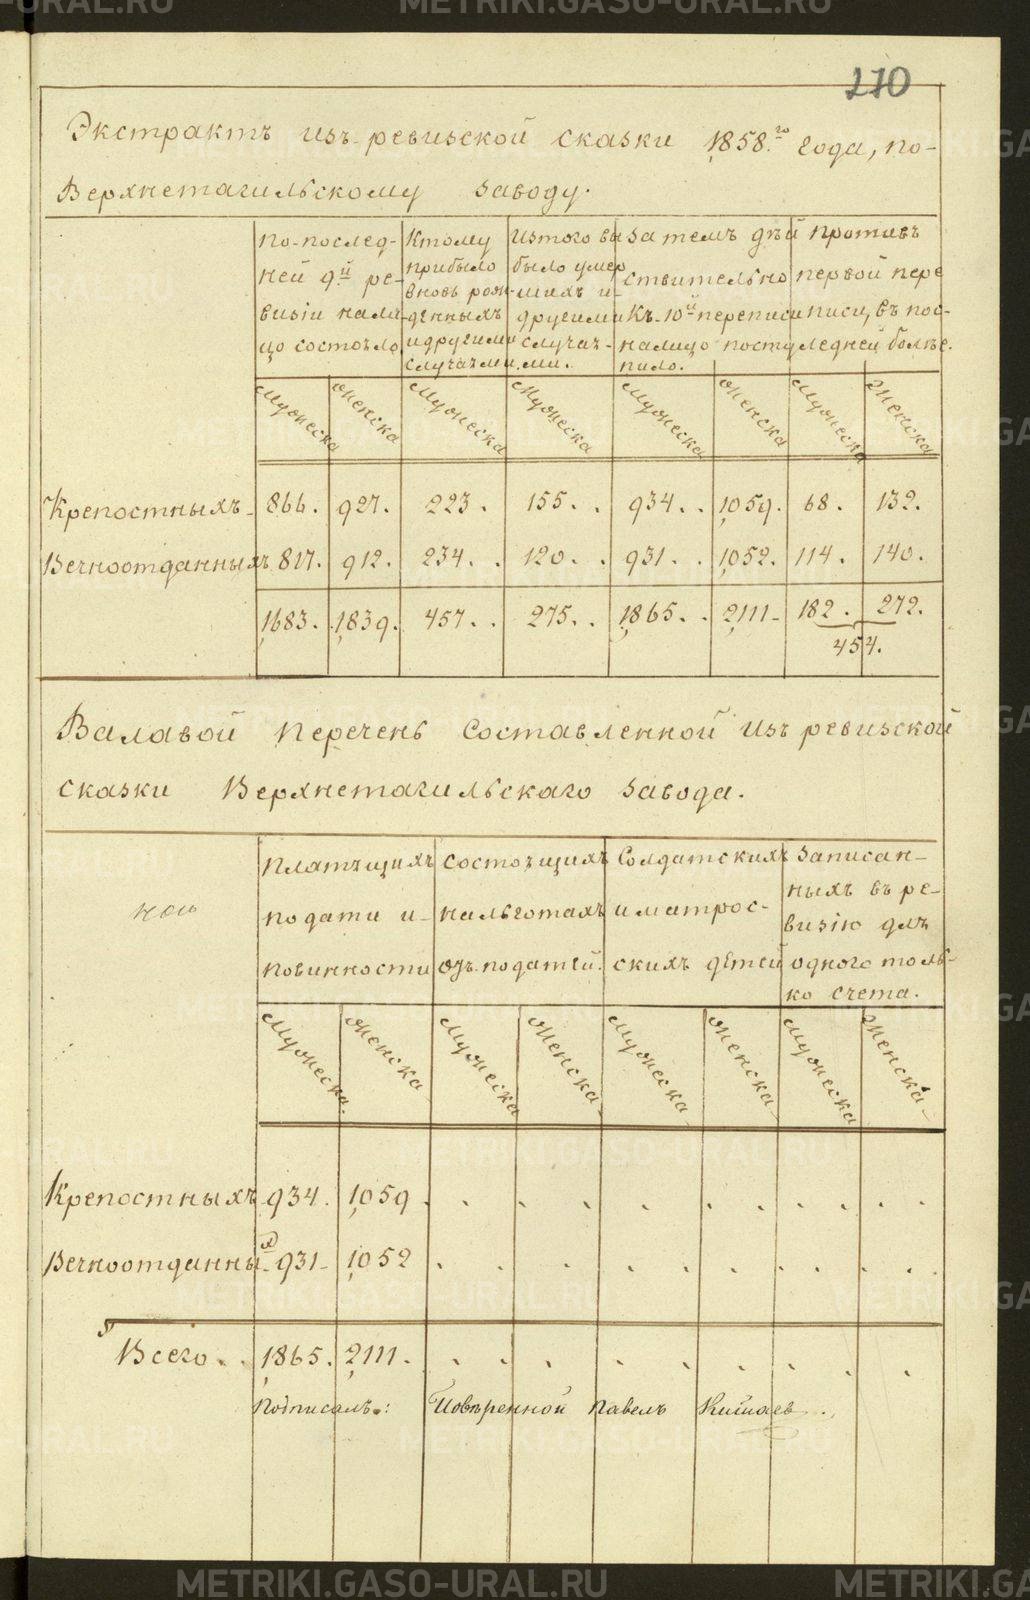 METRIKI.GASO-URAL.RU
270
Экстрактъ изъ ревизской сказки 1858.го года, по-
Верхнетагильскому заводу.
по-послед-
ней 9.й ре-
визіи нали-
цо состояло
Ктому
прибыло
вновь рож-
денныхъ
и другими
случаями
Изтого вы
было умер
шихъ и-
другими
случая-
ми.
за темъ дѣй
ствительно
Къ-10й переписи
налицо посту
пило.
противъ
первой пере
писи, въ пос-
ледней болѣе.
Мужеска Женска Мужеска Мужеска Мужеска Женска Мужеска Женска
Крепостныхъ 866. 927. 223. 155. . 934. . 1059. 68. 132.
Вечноотданныхъ 817. 912. 234. . 120. . 931. . 1052. 114. 140.
1683. 1839. 457. . 275. . 1865. . 2111- 182. 272.
454.
Валавой перечень составленной изъ ревизской
сказки Верхнетагильскаго завода.
платящихъ
подати и-
повинности
состоящихъ
нальготахъ
отъ податей.
Солдатскихъ
и матрос-
скихъ детей
Записан-
ныхъ въ ре-
визію для
одного толь-
ко счета.
Мужеска. Женска Мужеска Женска- Мужеска Женска- Мужеска Женска-
Крепостныхъ 934. 1059 . . . . . . . . . . .
Вечноотданныхъ 931- 1052 . . . . . . . . . . .
Всего. . 1865. 2111. . . . . . . . . . .
Подписалъ: Повѣренной Павелъ
METRIKI.GASO-URAL.RU